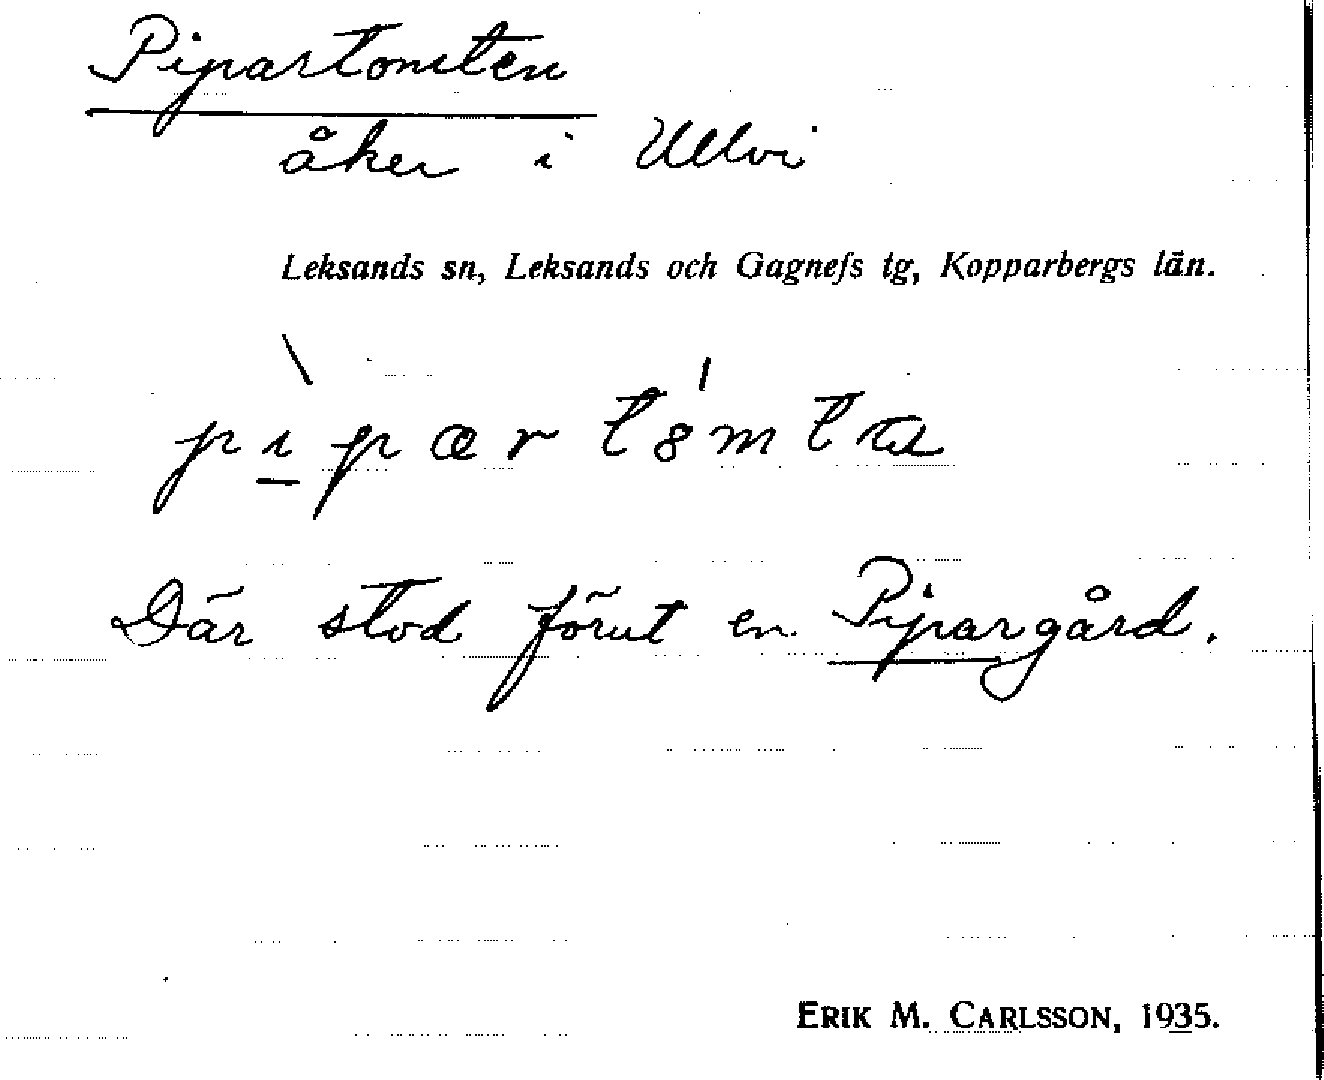 Pipartomten
åker i Ullvi
Leksands sn, Leksands och Gagnefs tg, Kopparbergs län.
pı̲pært8mta
Där stod förut en Pipargård.
ERIK M. CARLSSON, 1935.